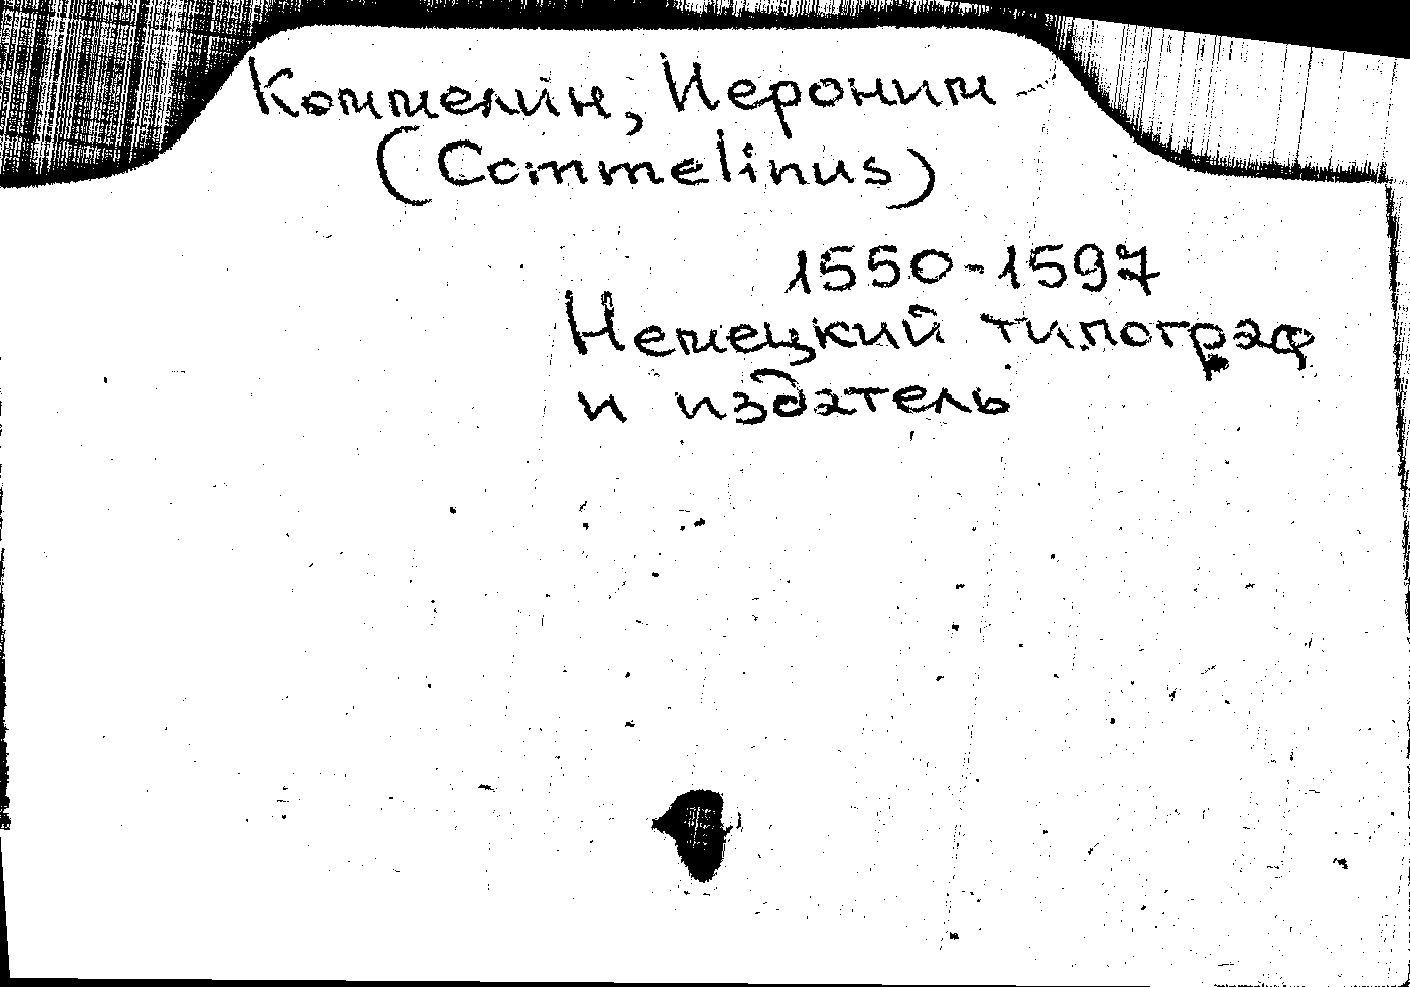 Коммелин, Иероним
(Commelinus)
1550-1597
Немецкий типограф
и издатель